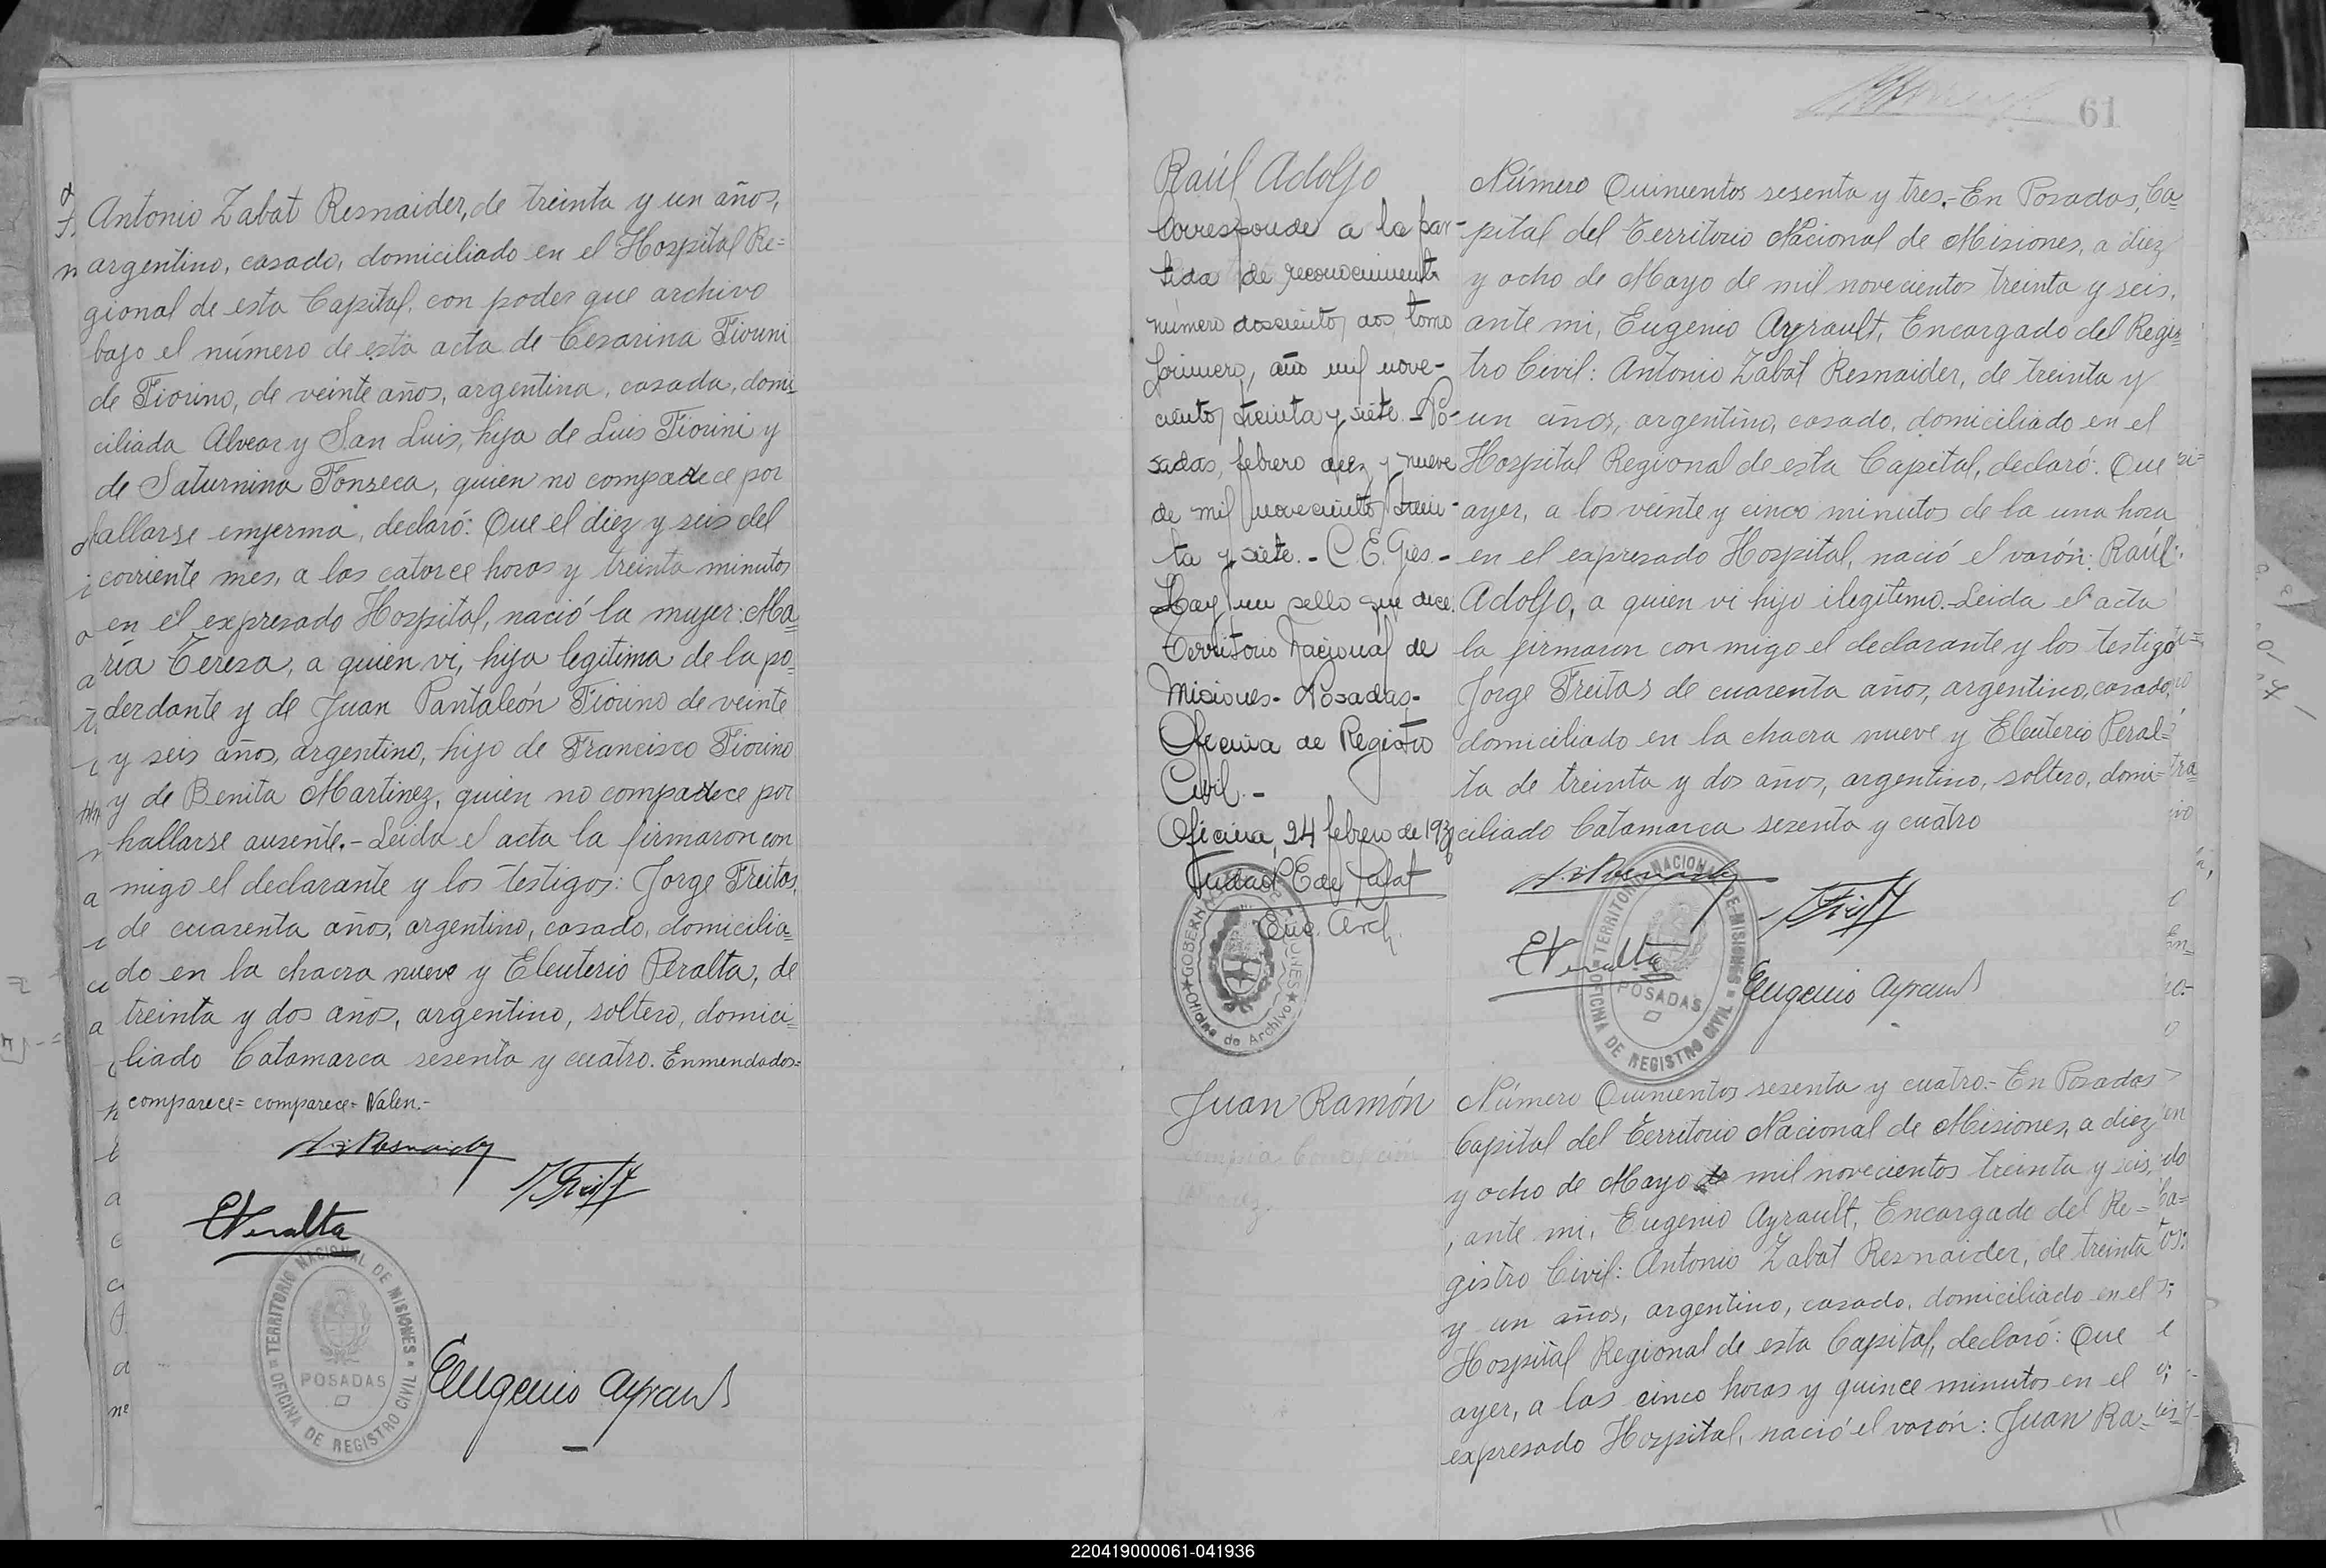 Antonio Zabat Resnaider, de treinta y un años,
argentino, casado, domiciliado en el Hospital Re=
gional de esta Capital, con poder que archivo
bajo el número de esta acta de Cesarina Fiorini
de Fiorino, de veinte años, argentina, casada, domi=
ciliada Alvear y San Luis, hija de Luis Fiorini y
de Saturnina Fonseca, quien no comparece por
hallarse enferma, declaró: Que el diez y seis del
corriente mes, a las catorce horas y treinta minutos
en el expresado Hospital, nació la mujer: Ma=
ría Teresa, a quien vi, hija legitima de la po=
derdante y de Juan Pantaleón Fiorino de veinte
y seis años, argentino, hijo de Francisco Fiorino
y de Benita Martinez, quien no comparece por
hallarse ausente.- Leida el acta la firmaron con
migo el declarante y los testigos: Jorge Freitas,
de cuarenta años, argentino, casado, domicilia=
do en la chacra nueve y Eleuterio Peralta, de
treinta y dos años, argentino, soltero, domici=
liado Catamarca sesenta y cuatro. Enmendados=
comparece= comparece= Valen.-
EPeralta
TERRITORIO NACIONAL DE MISIONES
POSADAS
OFICINA DE REGISTRO CIVIL
Eugenio Ayrault
61
Raúl Adolfo
Corresponde a la par-
tida de reconocimiento
número doscientos dos tomo
primero, año mil nove-
cientos treinta y siete.- Po-
sadas, febrero diez y nueve
de mil novecientos trein-
ta y siete.- C. E. Gres.-
Hay un sello que dice:
Territorio Nacional de
Misiones- Posadas-
Oficina de Registro
Civil.-
Oficina, 24 febrero de 1937
Enc. Arch.
GOBERNACION
MISIONES
Oficina de Archivo
Número Quinientos sesenta y tres.- En Posadas, Ca=
pital del Territorio Nacional de Misiones, a diez
y ocho de Mayo de mil novecientos treinta y seis,
ante mi, Eugenio Ayrault, Encargado del Regis=
tro Civil: Antonio Zabat Resnaider, de treinta y
un años, argentino, casado, domiciliado en el
Hospital Regional de esta Capital, declaró: Que
ayer, a los veinte y cinco minutos de la una hora
en el expresado Hospital, nació el varón: Raúl
Adolfo, a quien vi hijo ilegitimo.- Leida el acta
la firmaron con migo el declarante y los testigo
Jorge Freitas de cuarenta años, argentino, casado,
domiciliado en la chacra nueve y Eleuterio Peral=
ta de treinta y dos años, argentino, soltero, domi=
ciliado Catamarca sesenta y cuatro
EPeralta
TERRITORIO NACIONAL DE MISIONES
POSADAS
OFICINA DE REGISTRO CIVIL
Eugenio Ayrault
Juan Ramón
Número Quinientos sesenta y cuatro.- En Posadas
Capital del Territorio Nacional de Misiones, a diez
y ocho de Mayo de mil novecientos treinta y seis,
ante mi, Eugenio Ayrault, Encargado del Re=
gistro Civil: Antonio Zabat Resnaider, de treinta
y un años, argentino, casado, domiciliado en el
Hospital Regional de esta Capital, declaró: Que
ayer, a las cinco horas y quince minutos en el
expresado Hospital, nació el varón: Juan Ra=
220419000061-041936